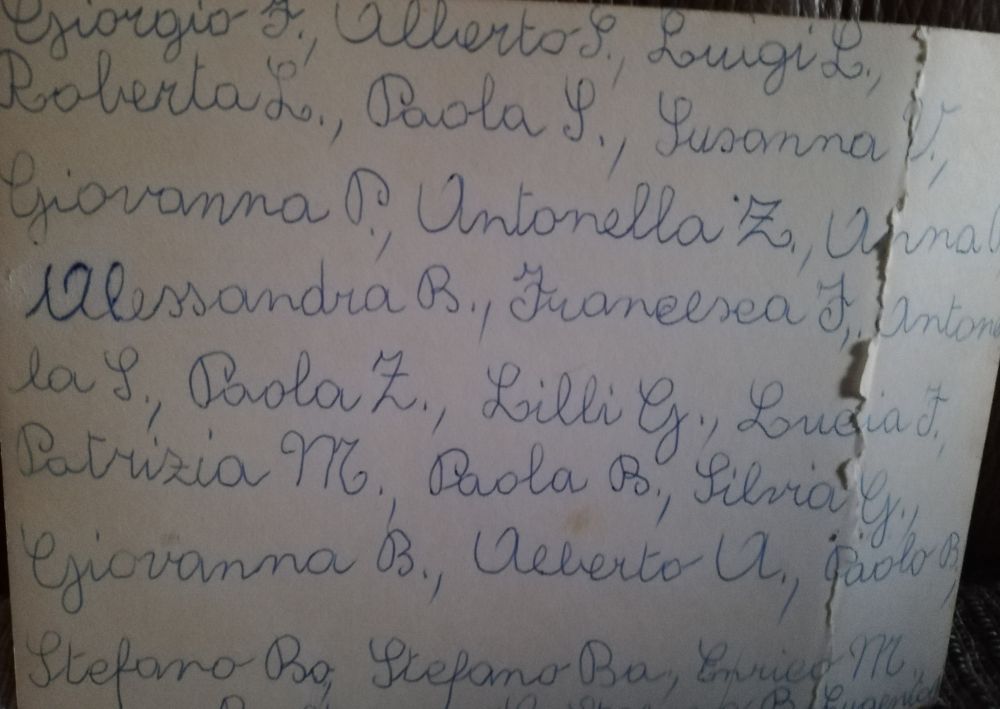 Giorgio F., Alberto S., Luigi L.,
Roberta L., Paola S., Susanna V.,
Giovanna P., Antonella Z., Anna
Alessandra B., Francesca F., Anton
la S., Paola Z., Lilli G., Lucia F.,
Patrizia M., Paola B., Silvia G.,
Giovanna B., Alberto A., Paolo B,
Stefano Bo, Stefano Ba, Enrico M.,
B. Eugenio